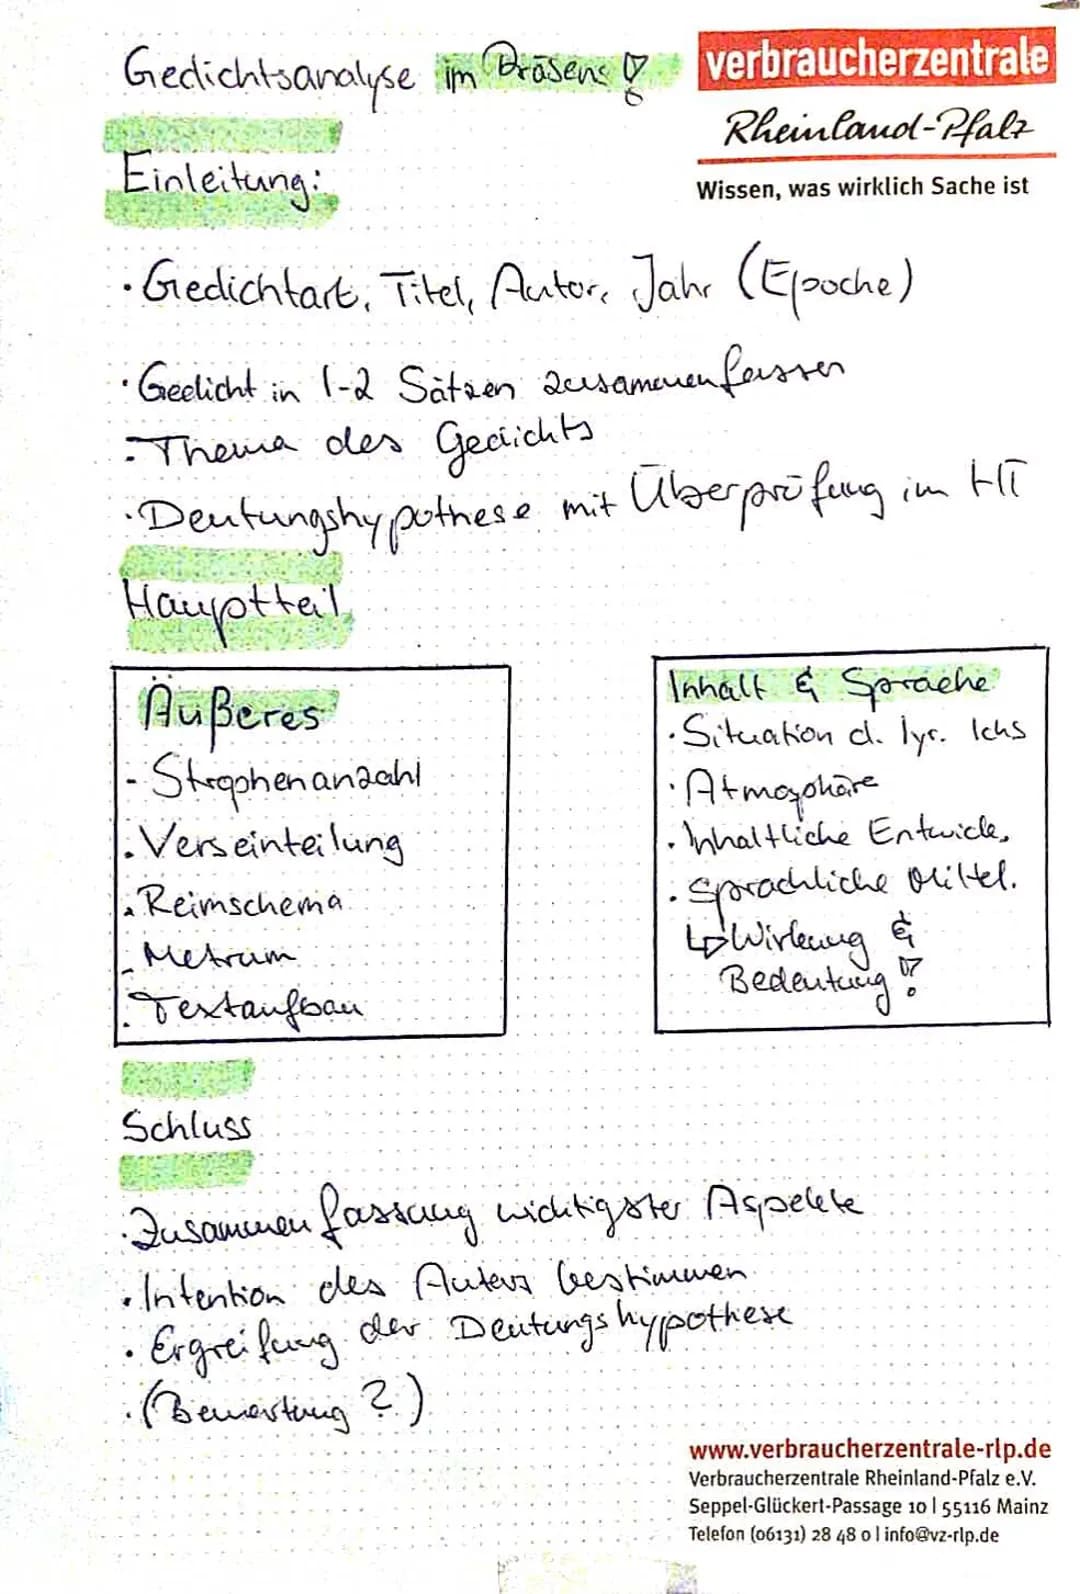 Gedichtsanalyse im Präsens!
verbraucherzentrale
Rheinland-Pfalz
Wissen, was wirklich Sache ist
Einleitung:
· Gedichtart, Titel, Autor, Jahr (Epoche)
· Gedicht in 1-2 Sätzen zusammenfassen
- Thema des Gedichts
· Deutungshypothese mit Überprüfung im HT
Hauptteil
Äußeres
- Strophenanzahl
· Verseinteilung
· Reimschema
- Metrum
· Textaufbau
Inhalt & Sprache
· Situation d. lyr. Ichs
· Atmosphäre
· Inhaltliche Entwick.
· Sprachliche Mittel.
↳ Wirkung &
Bedeutung!
Schluss
· Zusammenfassung wichtigster Aspekte
· Intention des Autors bestimmen
· Ergreifung der Deutungshypothese
· (Bewertung?)
www.verbraucherzentrale-rlp.de
Verbraucherzentrale Rheinland-Pfalz e.V.
Seppel-Glückert-Passage 10 | 55116 Mainz
Telefon (06131) 28 48 0 | info@vz-rlp.de